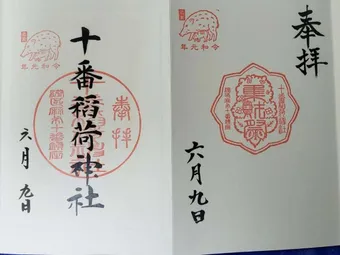 奉拝
六月九日
令和元年
十番稲荷神社
奉拝
六月九日
令和元年